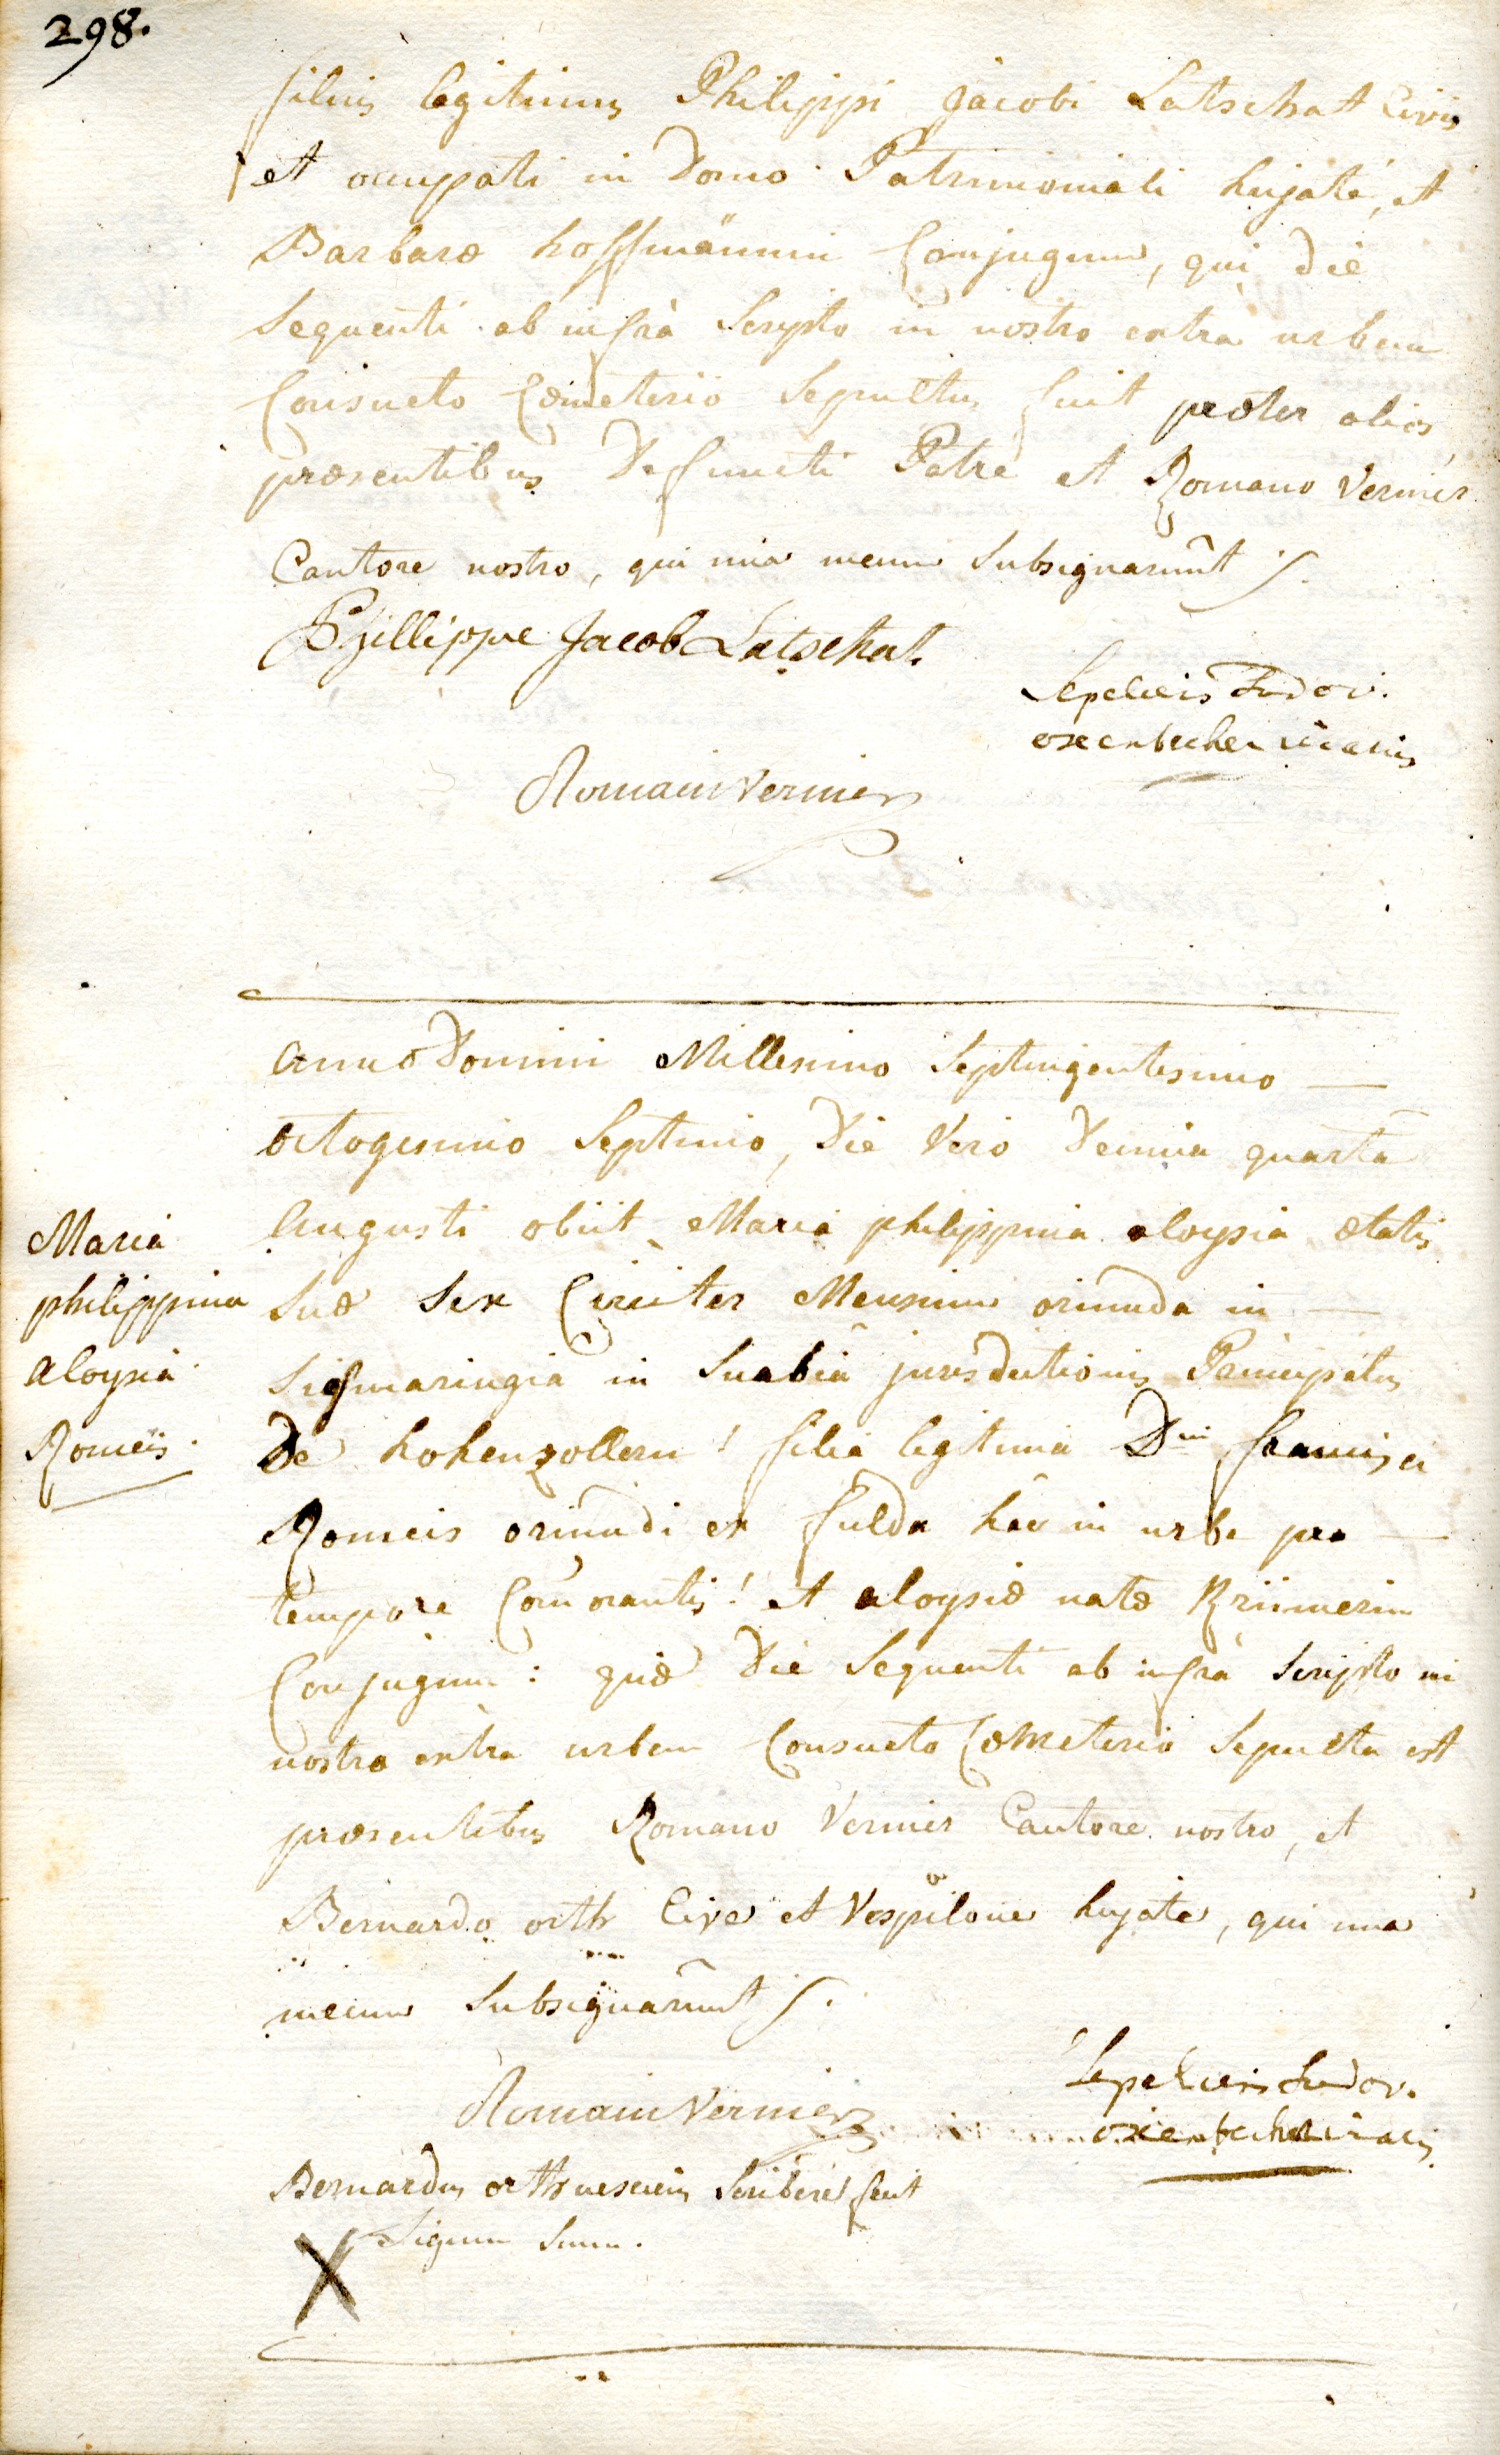 298.
filius legitimus Philippi Jacobi Latschat Civis
et occupati in Domo Patrimoniali hujate, et
Barbaræ hoffmännin Conjugum, qui die
Sequenti ab infrà Scripto in nostro extra urbem
Consueto Cœmeterio Sepultus fuit præter alios
præsentibus Defuncti Patre et Romano Vernier
Cantore nostro, qui unà mecum Subsignarunt
Phillippe Jacob Latschat
Romain Vernier
Anno Domini Millesimo Septingentesimo
octogesimo Septimo, Die Vero Decima quarta
Augusti obiit Maria philippina aloysia ætatis
Suæ Sex Circiter Mensium oriunda in
Sigmaringia in Suabiâ jurisdictionis Principatus
De hohenzollern! filia legitima Dni francisci
Romeis oriundi ex fulda hâc in urbe pro
tempore Com̄orantis! et aloysiæ natæ Kriimerin
Conjugum: quæ Die Sequenti ab infrà Scripto in
nostro extra urbem Consueto Cœmeterio Sepulta est
præsentibus Romano Vernier Cantore nostro, et
Bernardo orth Cive et Vespilone hujate, qui una
mecum Subsignarunt
Maria
philippina
Aloysia
Romeis.
Romain Vernier
Bernardus orth nesciens Scribere fecit
X Signum Suum.